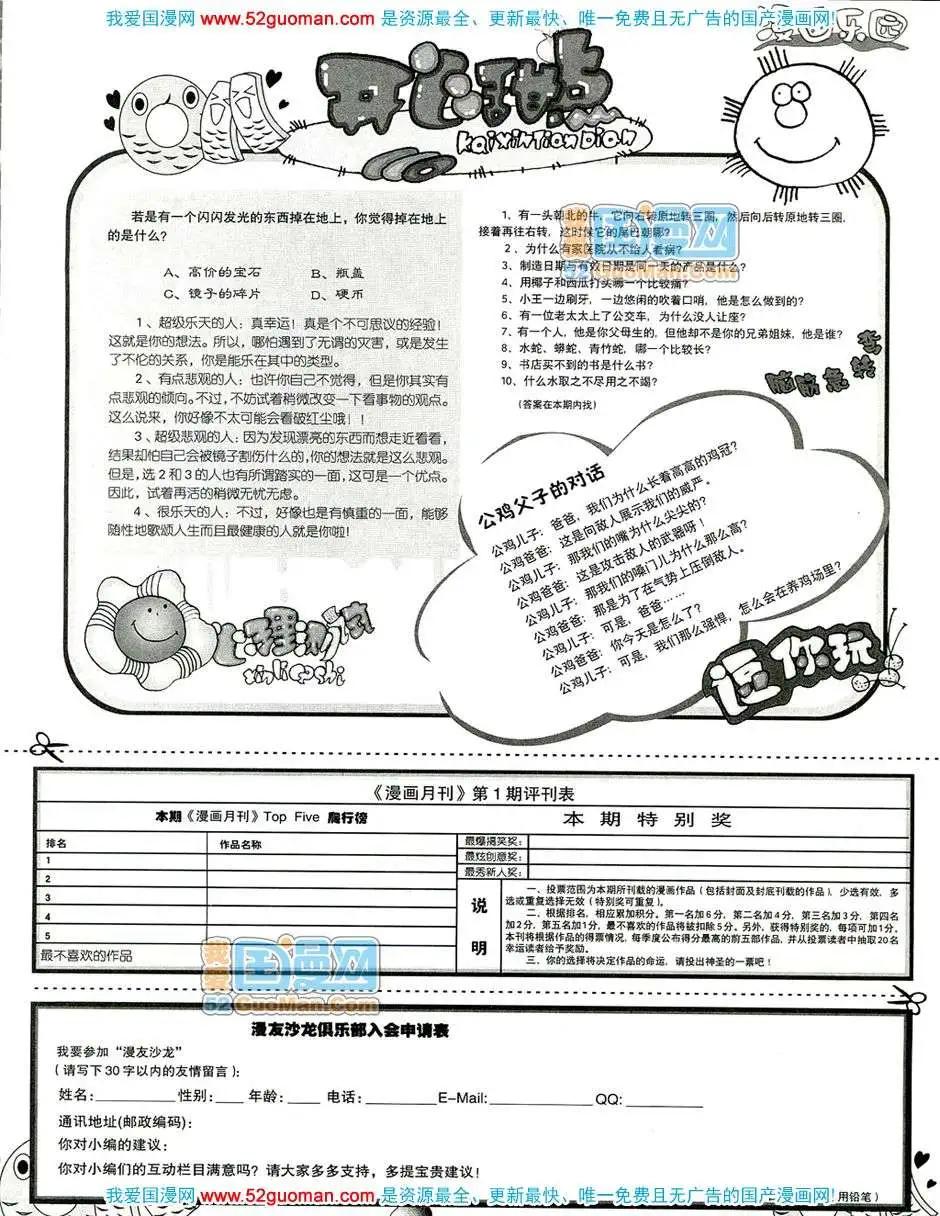 我爱国漫网 www.52guoman.com 是资源最全、更新最快、唯一免费且无广告的国产漫画网!
漫画乐园
开心甜点
KaiXinTianDian
若是有一个闪闪发光的东西掉在地上，你觉得掉在地上
的是什么？
A、高价的宝石 B、瓶盖
C、镜子的碎片 D、硬币
1、超级乐天的人：真幸运！真是个不可思议的经验！
这就是你的想法。所以，哪怕遇到了无谓的灾害，或是发生
了不伦的关系，你是能乐在其中的类型。
2、有点悲观的人：也许你自己不觉得，但是你其实有
点悲观的倾向。不过，不妨试着稍微改变一下看事物的观点。
这么说来，你好像不太可能会看破红尘哦！！
3、超级悲观的人：因为发现漂亮的东西而想走近看看，
结果却怕自己会被镜子割伤什么的，你的想法就是这么悲观。
但是，选2和3的人也有所谓踏实的一面，这可是一个优点。
因此，试着再活的稍微无忧无虑。
4、很乐天的人：不过，好像也是有慎重的一面，能够
随性地歌颂人生而且最健康的人就是你啦！
心理测试
xinliceshi
1、有一头朝北的牛，它向右转原地转三圈，然后向后转原地转三圈，
接着再往右转，这时候它的尾巴朝哪？
2、为什么有家医院从不给人看病？
3、制造日期与有效日期是同一天的产品是什么？
4、用椰子和西瓜打头哪一个比较痛？
5、小王一边刷牙，一边悠闲的吹着口哨，他是怎么做到的？
6、有一位老太太上了公交车，为什么没人让座？
7、有一个人，他是你父母生的，但他却不是你的兄弟姐妹，他是谁？
8、水蛇、蟒蛇、青竹蛇，哪一个比较长？
9、书店买不到的书是什么书？
10、什么水取之不尽用之不竭？
（答案在本期内找）
脑筋急转弯
我爱国漫网
52GuoMan.com
公鸡父子的对话
公鸡儿子：爸爸，我们为什么长着高高的鸡冠？
公鸡爸爸：这是向敌人展示我们的威严。
公鸡儿子：那我们的嘴为什么尖尖的？
公鸡爸爸：这是攻击敌人的武器呀！
公鸡儿子：那我们的嗓门儿为什么那么高？
公鸡爸爸：那是为了在气势上压倒敌人。
公鸡儿子：可是，爸爸……
公鸡爸爸：你今天是怎么了？
公鸡儿子：可是，我们那么强悍，怎么会在养鸡场里？
逗你玩
《漫画月刊》第1期评刊表
本期《漫画月刊》Top Five 爬行榜
本期特别奖
排名 作品名称
1
2
3
4
5
最不喜欢的作品
最爆搞笑奖：
最炫创意奖：
最秀新人奖：
说
明
一、投票范围为本期所刊载的漫画作品（包括封面及封底刊载的作品），少选有效，多
选或重复选择无效（特别奖可重复）。
二、根据排名，相应累加积分。第一名加6分，第二名加4分，第三名加3分，第四名
加2分，第五名加1分，最不喜欢的作品将被扣除5分。另外，获得特别奖的，每项可加1分。
本刊将根据作品的得票情况，每季度公布得分最高的前五部作品，并从投票读者中抽取20名
幸运读者给予奖励。
三、你的选择将决定作品的命运，请投出神圣的一票吧！
我爱国漫网
52GuoMan.com
漫友沙龙俱乐部入会申请表
我要参加“漫友沙龙”
（请写下30字以内的友情留言）：
姓名： 性别： 年龄： 电话： E-Mail: QQ:
通讯地址(邮政编码)：
你对小编的建议：
你对小编们的互动栏目满意吗？请大家多多支持，多提宝贵建议！
用铅笔）
我爱国漫网 www.52guoman.com 是资源最全、更新最快、唯一免费且无广告的国产漫画网!